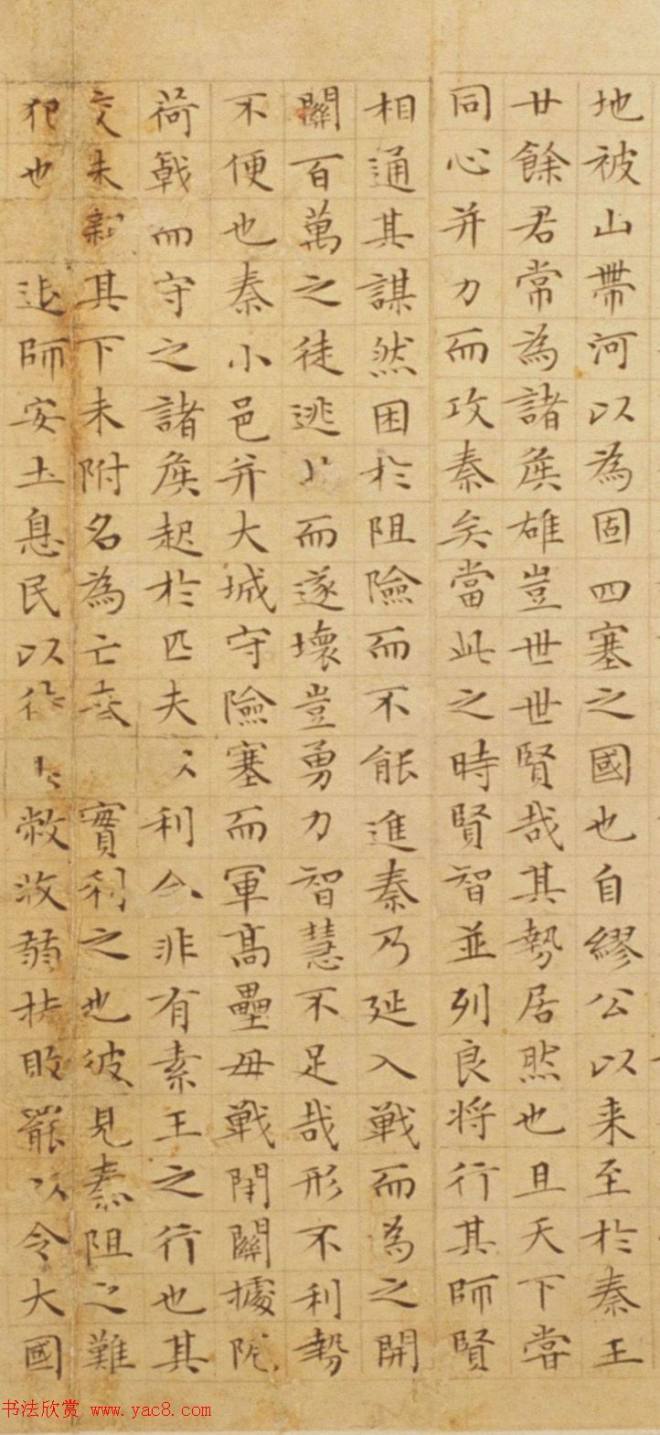 地被山帶河以為固四塞之國也自繆公以来至於秦王
廿餘君常為諸侯雄豈世世賢哉其勢居然也且天下嘗
同心并力而攻秦矣當此之時賢智並列良將行其師賢
相通其謀然困於阻險而不能進秦乃延入戰而為之開
關百萬之徒逃 而遂壞豈勇力智慧不足哉形不利勢
不便也秦小邑并大城守險塞而軍高壘毋戰閉關據阨
荷戟而守之諸侯起於匹夫 利会非有素王之行也其
交未親其下未附名為亡秦 實利之也彼見秦阻之難
犯也 退師安土息民以 敝收弱扶罷以令大國
书法欣赏 www.yac8.com